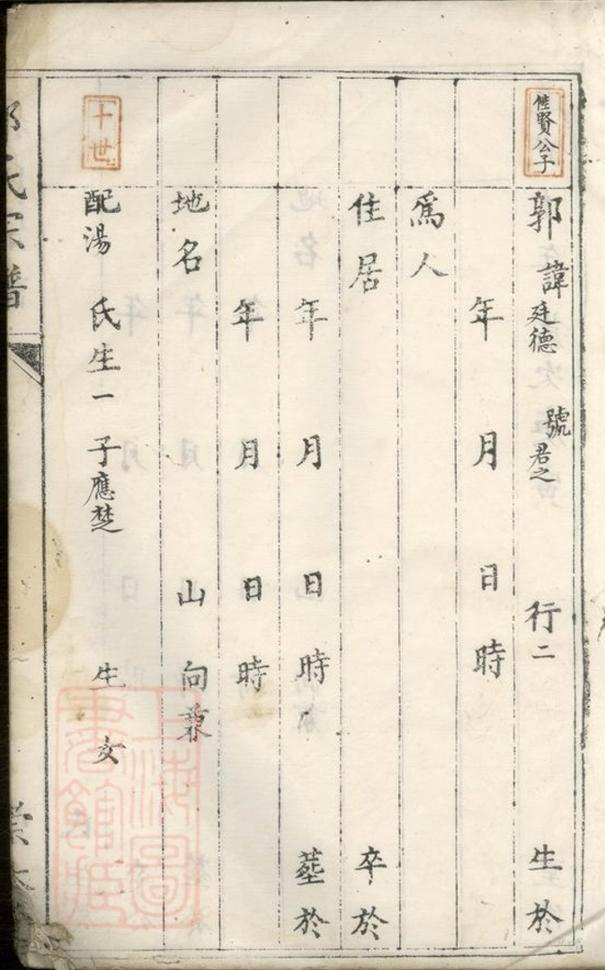 佳賢公子
郭 諱廷德 號君之 行二 生於
年 月 日 時
爲人
住居 卒於
年 月 日 時 塟於
年 月 日 時
地名 山 向兼
十世
配湯 氏生一 子應楚 生 女
氏宗譜
上海圖書館藏